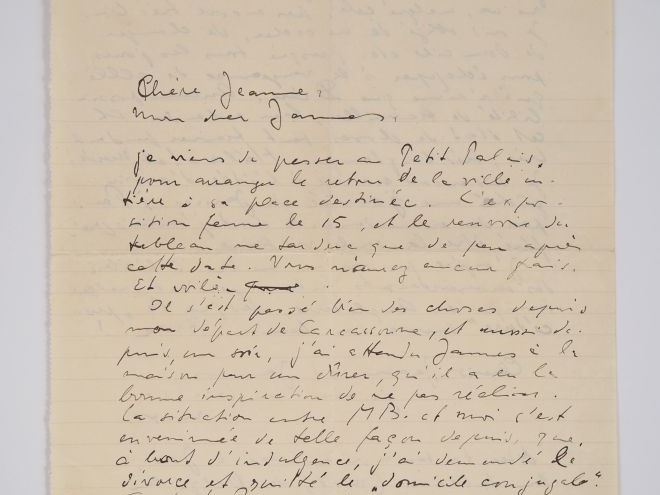 Chère Jeanne,
mon cher James,
je viens de passer au Petit Palais,
pour arranger le retour de la ville en-
tière à sa place destinée. L'expo-
sition ferme le 15, et le renvoi du
tableau ne tardera que de peu après
cette date. Vous n'aurez aucun frais.
Et voilà
Il s'est passé bien des choses depuis
mon départ de Carcassonne, et aussi de-
puis, un soir, j'ai attendu James à la
maison pour un dîner, qu'il a eu la
bonne inspiration de ne pas réaliser.
La situation entre MB. et moi s'est
envenimée de telle façon depuis, que,
à bout d'indulgence, j'ai demandé le
divorce et quitté le „domicile conjugale".